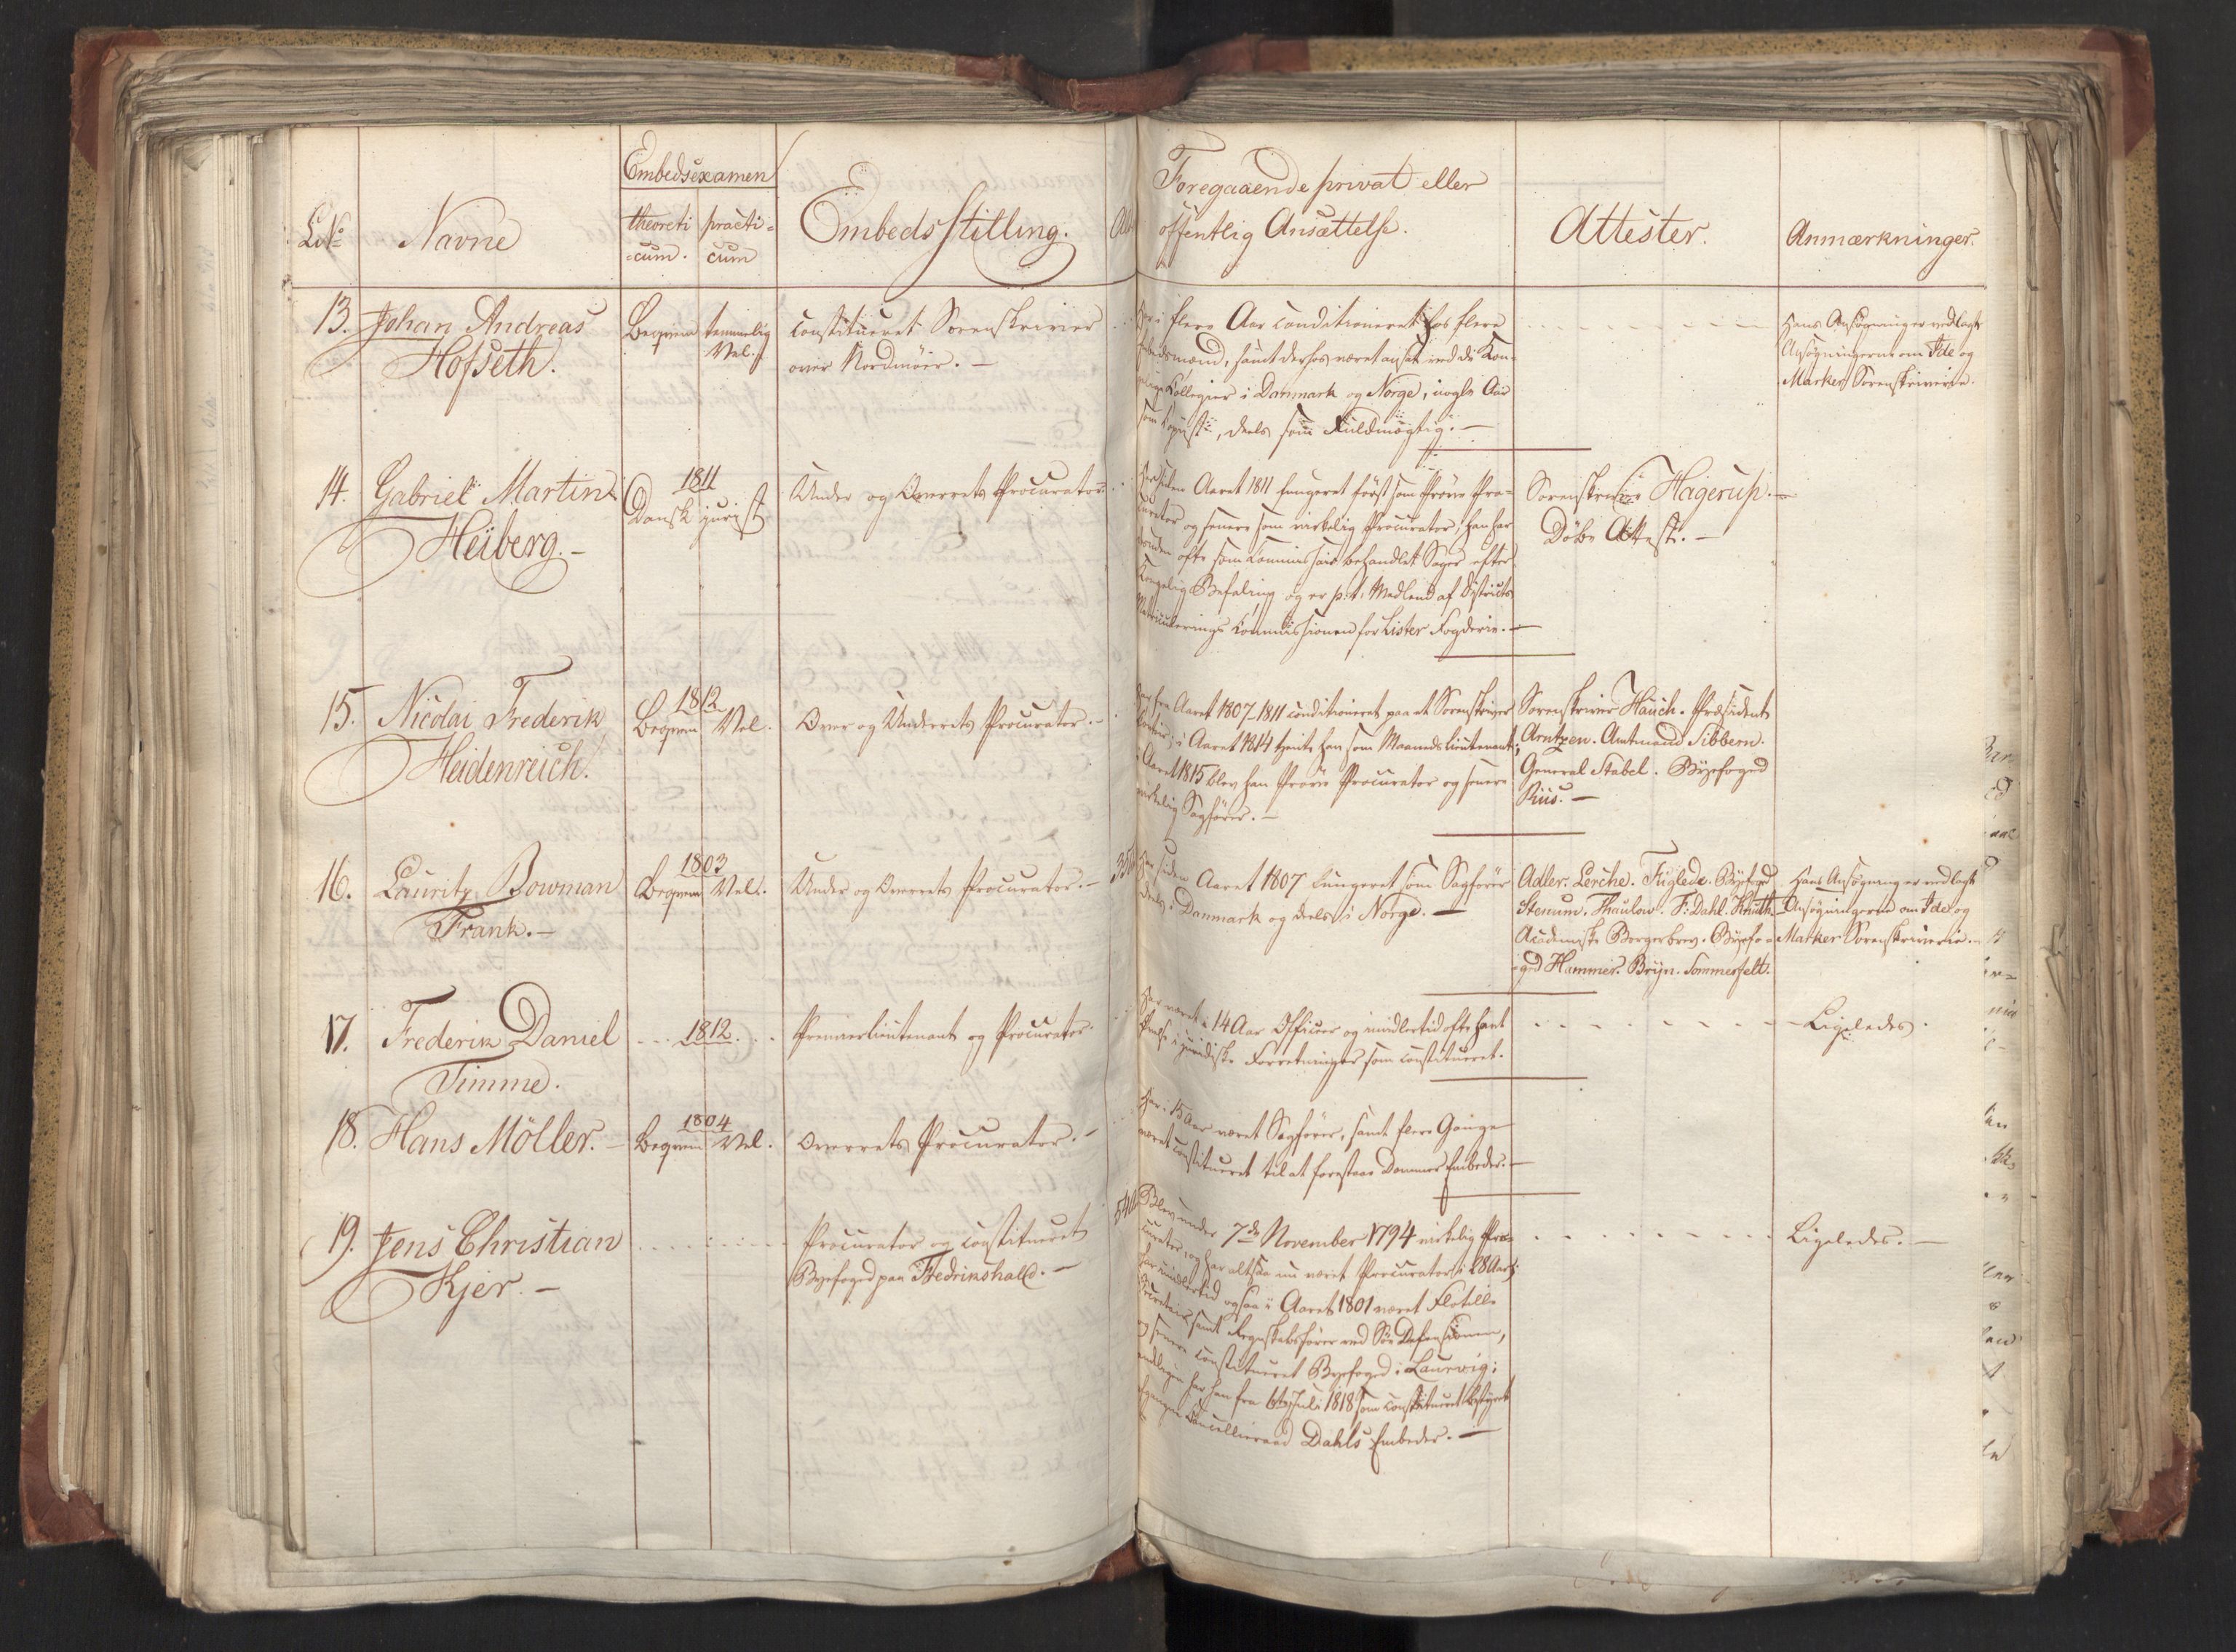 Embedsexamen
Lb. No
Navne
theoreti
=cum.
practi=
cum
Embedsstilling.
Foregaaende privat eller
offentlig Ansættelse.
Attester.
Anmærkninger.
13. Johan Andreas
Hofseth.
Beqvem temmelig
Vel.
constitueret Sorenskriver
over Nordmöer. —
i flere Aar conditioneret hos flere
Embedsmænd, samt derhos været ansat ved de Kon-
gelige Collegier i Danmark og Norge, nogle Aar
som Copiist, deels som Fuldmægtig. —
Hans Ansøgning er vedlagt
Ansøgningerne om Ide og
Markers Sorenskriverie.
14. Gabriel Martin
Heiberg. —
1811
Dansk jurist
Under og Overrets Procurator
siden Aaret 1811 fungeret først som Prøve Pro-
curator og senere som virkelig Procurator; han har
desuden ofte som Commissair behandlet Sager efter
Kongelig Befaling og er p. t. Medlem af Districts
Matriculerings Commissionen for Lister Fogderie. —
Sorenskriver Hagerup. —
Döbe Attest. —
15. Nicolai Frederik
Heidenreich.
1812
Beqvem Vel.
Over og Underrets Procurator. —
Har fra Aaret 1807–1811 conditioneret paa et Sorenskriver
Contoir; i Aaret 1814 tjente han som Maaneds Lieutenant;
i Aaret 1815 blev han Prøve Procurator og senere
virkelig Sagfører. —
Sorenskriver Hauch. Præsident
Arntzen. Amtmand Sibbern.
General Stabel. Byefoged
Riis. —
16. Lauritz Bowman
Frank. —
1803
Beqvem Vel.
Under og Overrets Procurator. —
Har siden Aaret 1807 fungeret som Sagfører
deels i Danmark og deels i Norge. —
Adler. Lerche. Fuglede. Byefoged
Stenum. Thaulow. F: Dahl. Knuth.
Academiske Borgerbrev. Byefo-
ged Hammer. Bryn. Sommerfelt.
Hans Ansøgning er vedlagt
Ansøgningerne om Ide og
Marker Sorenskriverie. —
17. Frederik Daniel
Timme.
1812.
Premierlieutenant og Procurator.
Har været i 14 Aar Officeer og imidlertid ofte havt
i juridiske Forretninger som constitueret.
Ligeledes.
18. Hans Möller. —
1804
Beqvem Vel.
Overrets Procurator. —
Har i 15 Aar været Sagfører, samt flere Gange
været constitueret til at forestaae Dommer Embeder. —
19. Jens Christian
Kjer. —
Procurator og constitueret
Byefoged paa Fredrikshald. —
Blev under 7de November 1794 virkelig Pro-
curator, og har altsaa nu været Procurator i 28 Aar;
har imidlertid ogsaa i Aaret 1801 været Flotille
Secretair samt Regnskabsfører ved Søe Defensionen,
og senere constitueret Byefoged i Laurvig;
endligen har han fra 6te Juli 1818 som constitueret bestyret
afgangne Cancellieraad Dahls Embeder. —
Ligeledes. —